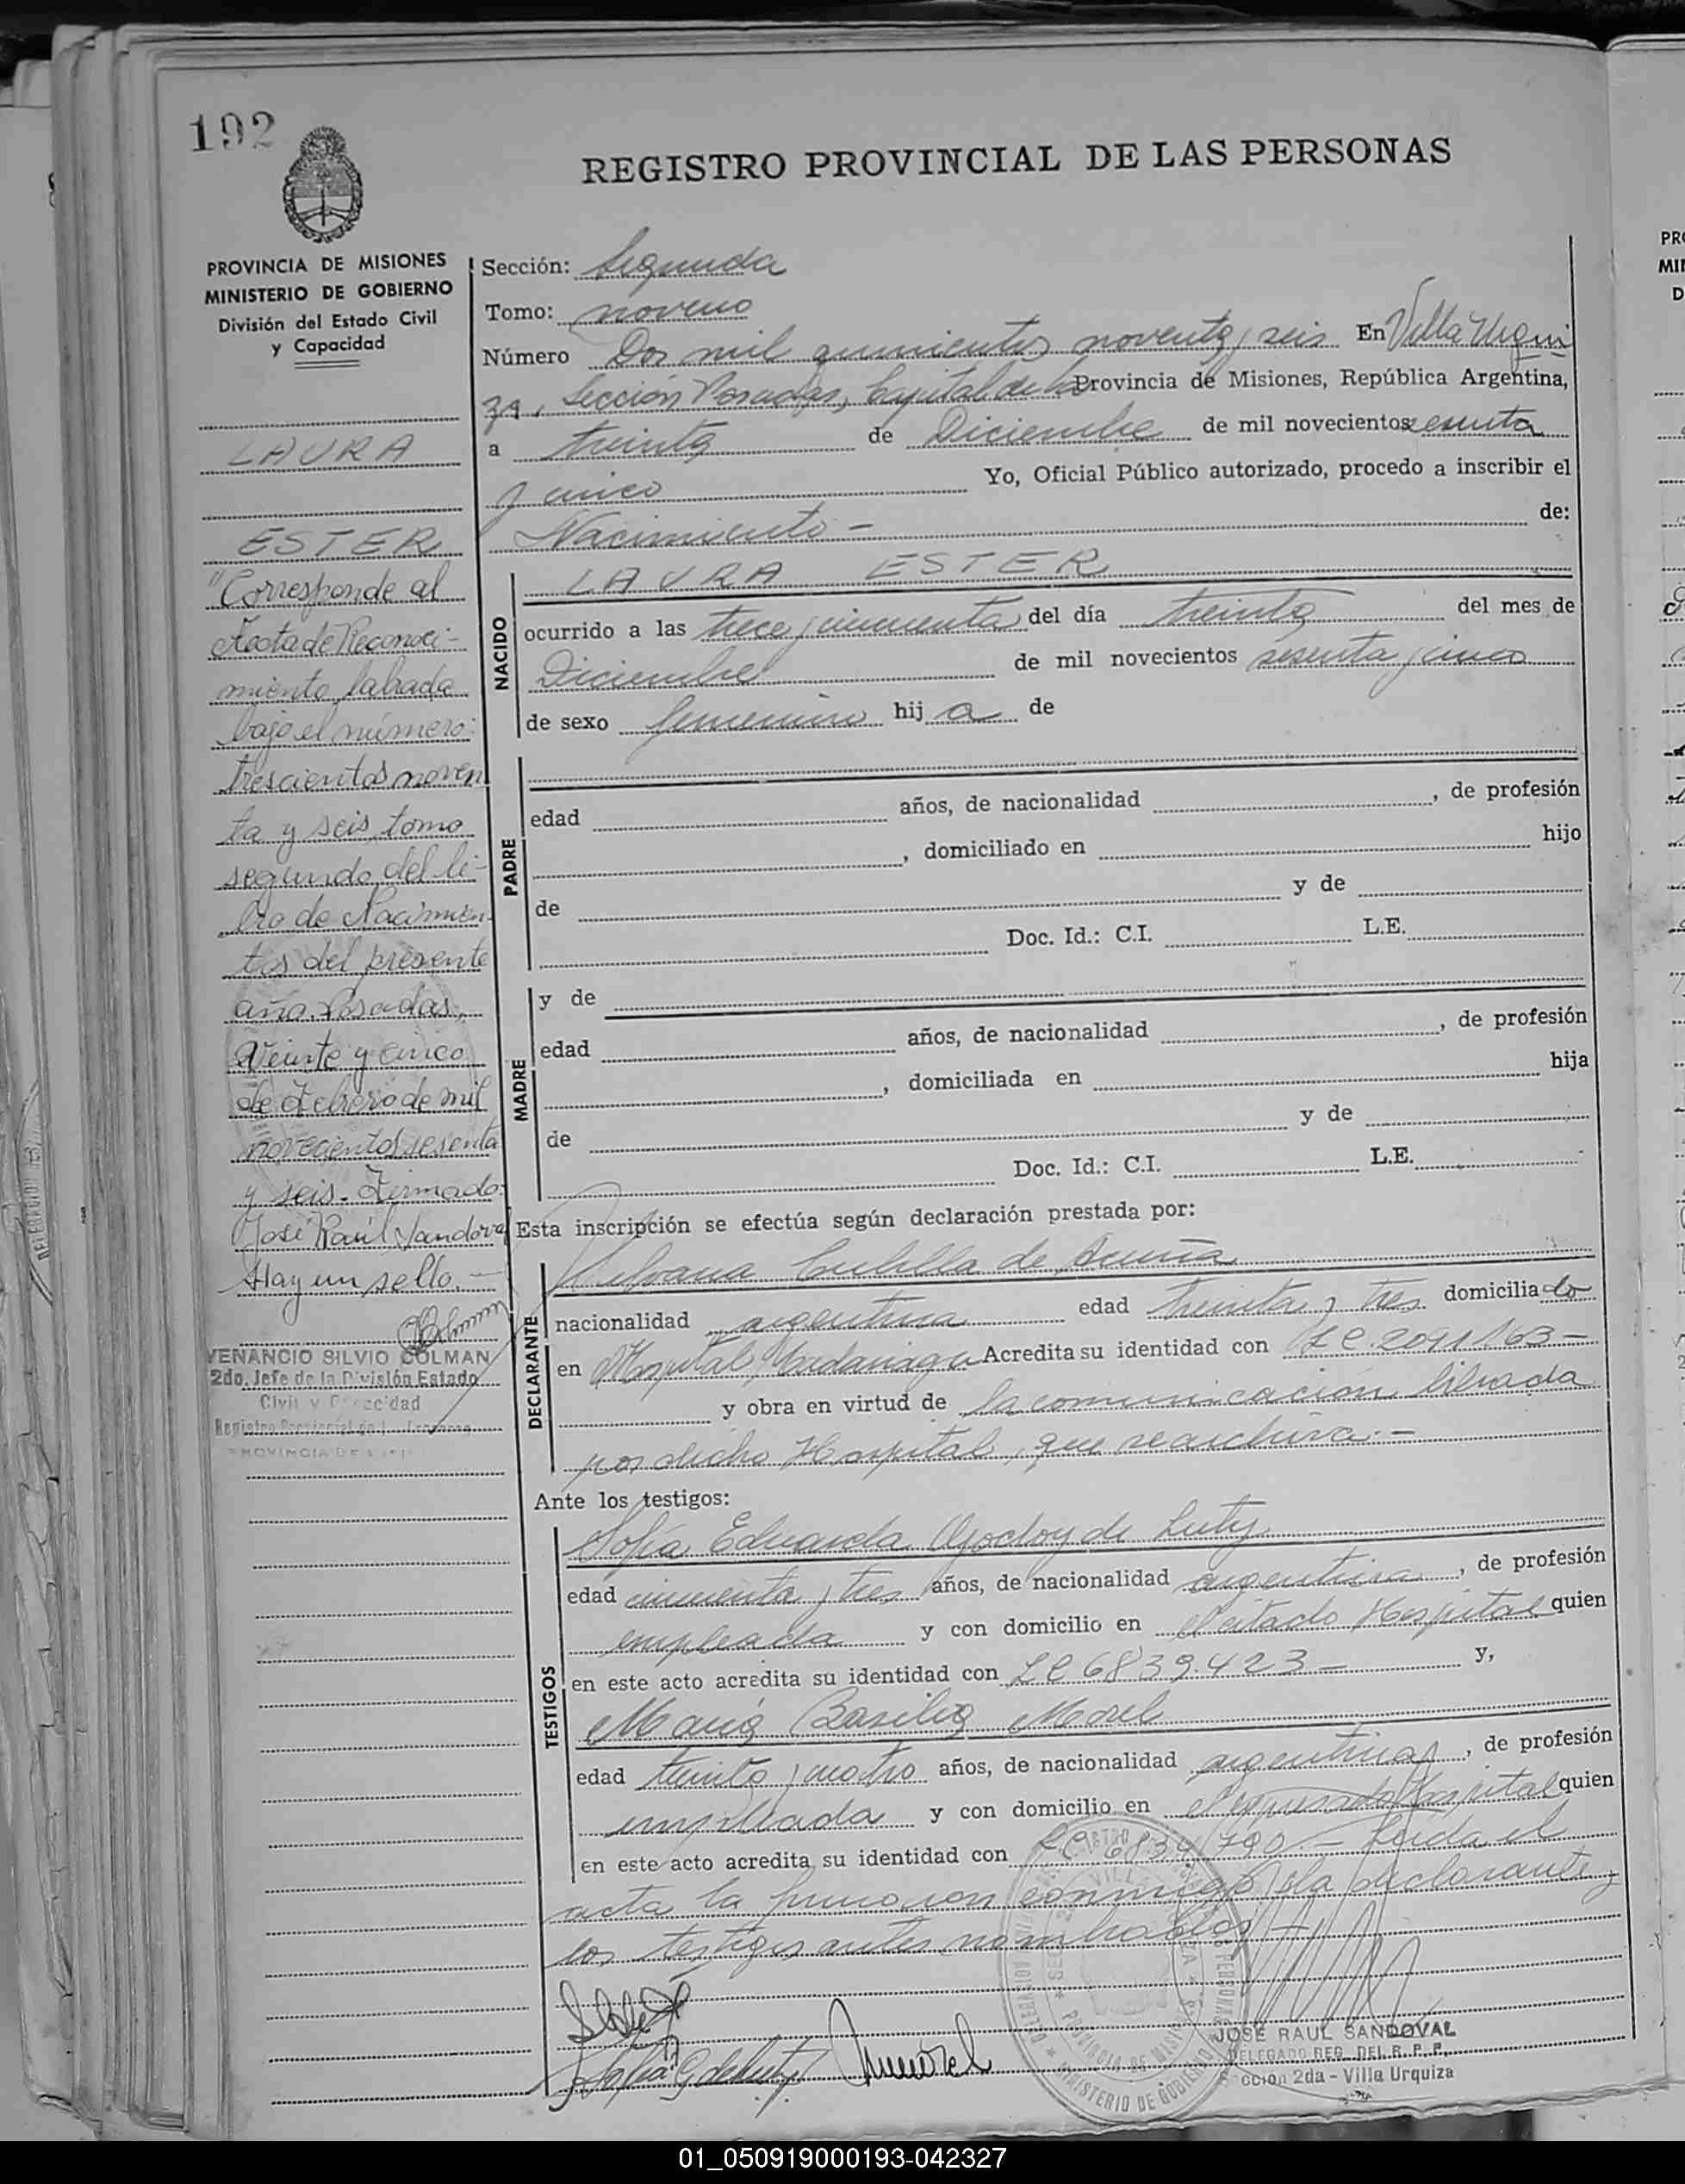 192
REGISTRO PROVINCIAL DE LAS PERSONAS
PROVINCIA DE MISIONES
MINISTERIO DE GOBIERNO
División del Estado Civil
y Capacidad
LAURA
ESTER
"Corresponde al
Acta de Reconoci-
miento labrada
bajo el número:
trescientos noven
ta y seis, tomo
segundo del li-
bro de Nacimien
tos del presente
año. Posadas,
Veinte y cinco
de Febrero de mil
novecientos sesenta
y seis. Firmado:
José Raúl Sandoval
Hay un sello.-
VENANCIO SILVIO COLMAN
2do. Jefe de la División Estado
Civil y Capacidad
Sección: Segunda
Tomo: noveno
Número Dos mil quinientos noventa y seis En Villa Urqui
za, Sección Posadas, Capital de la Provincia de Misiones, República Argentina,
a treinta de Diciembre de mil novecientos sesenta
y cinco Yo, Oficial Público autorizado, procedo a inscribir el
Nacimiento - de:
NACIDO
LAURA ESTER
ocurrido a las trece y cincuenta del día treinta del mes de
Diciembre de mil novecientos sesenta y cinco
de sexo femenino hij a de
PADRE
edad años, de nacionalidad , de profesión
, domiciliado en hijo
de y de
Doc. Id.: C.I. L.E.
MADRE
y de
edad años, de nacionalidad , de profesión
, domiciliada en hija
de y de
Doc. Id.: C.I. L.E.
Esta inscripción se efectúa según declaración prestada por:
DECLARANTE
de Acuña
nacionalidad argentina edad treinta y tres domiciliado
en Hospital Madariaga Acredita su identidad con LC. 2091163-
y obra en virtud de la comunicación librada
por dicho Hospital, que se archiva.-
Ante los testigos:
TESTIGOS
Sofía Eduarda Godoy de Luty
edad cincuenta y tres años, de nacionalidad argentina , de profesión
empleada y con domicilio en el citado Hospital quien
en este acto acredita su identidad con LC 6839.423- y,
María Basilia Morel
edad treinta y cuatro años, de nacionalidad argentina , de profesión
empleada y con domicilio en el expresado Hospital quien
en este acto acredita su identidad con LC 6839790- Leida el
acta la firmaron conmigo, la declarante y
los testigos antes nombrados-
JOSE RAUL SANDOVAL
DELEGADO REG. DEL R. P. P.
Sección 2da - Villa Urquiza
01_050919000193-042327